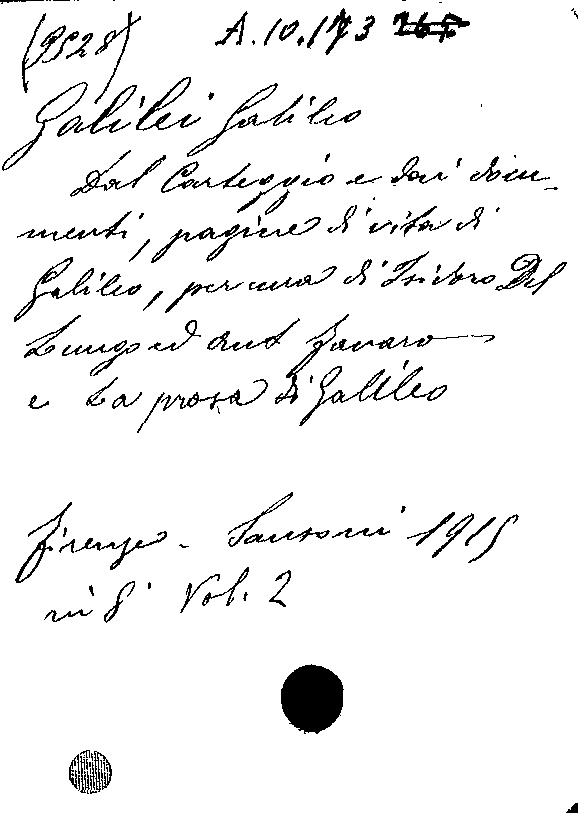 (9528) A.10.173
Galilei Galileo
Dal Carteggio e dai docu-
menti, pagine di vita di
Galileo, per cura di Isidoro Del
Lungo ed Ant Favaro
e La prosa di Galileo
Firenze - Sansoni 1915
in 8° Vol. 2